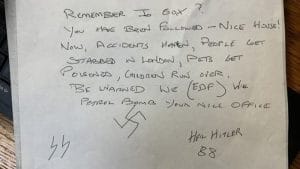 REMEMBER JO COX?
YOU HAVE BEEN FOLLOWED – NICE HOUSE!
NOW, ACCIDENTS HAPPEN, PEOPLE GET
STABBED IN LONDON, PETS GET
POISONED, CHILDREN RUN OVER.
BE WARNED WE (EDF) WILL
PETROL BOMBS YOUR NICE OFFICE
HEIL HITLER
SS
88